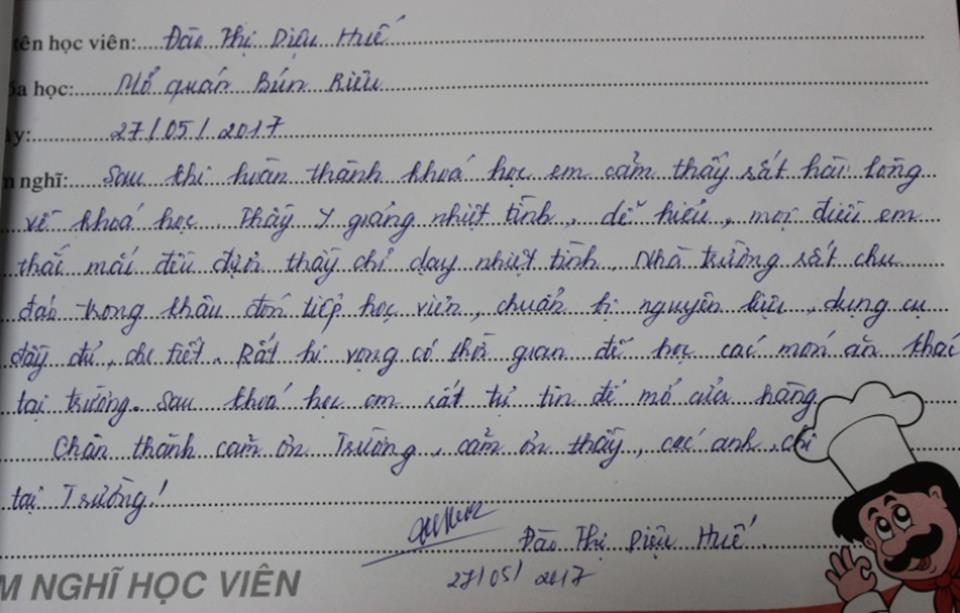 tên học viên: Đào Thị Diệu Huế
óa học: Mở quán Bún Riêu
ày: 27/05/2017
m nghĩ: Sau khi hoàn thành khoá học em cảm thấy rất hài lòng
về khoá học. Thầy Y giảng nhiệt tình, dễ hiểu, mọi điều em
thắc mắc đều được thầy chỉ dạy nhiệt tình. Nhà trường rất chu
đáo trong khâu đón tiếp học viên, chuẩn bị nguyên liệu, dụng cụ
đầy đủ, chi tiết. Rất hi vọng có thời gian để học các món ăn khác
tại trường. Sau khoá học em rất tự tin để mở cửa hàng
Chân thành cảm ơn Trường, cảm ơn thầy, các anh chị
tại Trường!
Đào Thị Diệu Huế
27/05/2017
M NGHĨ HỌC VIÊN